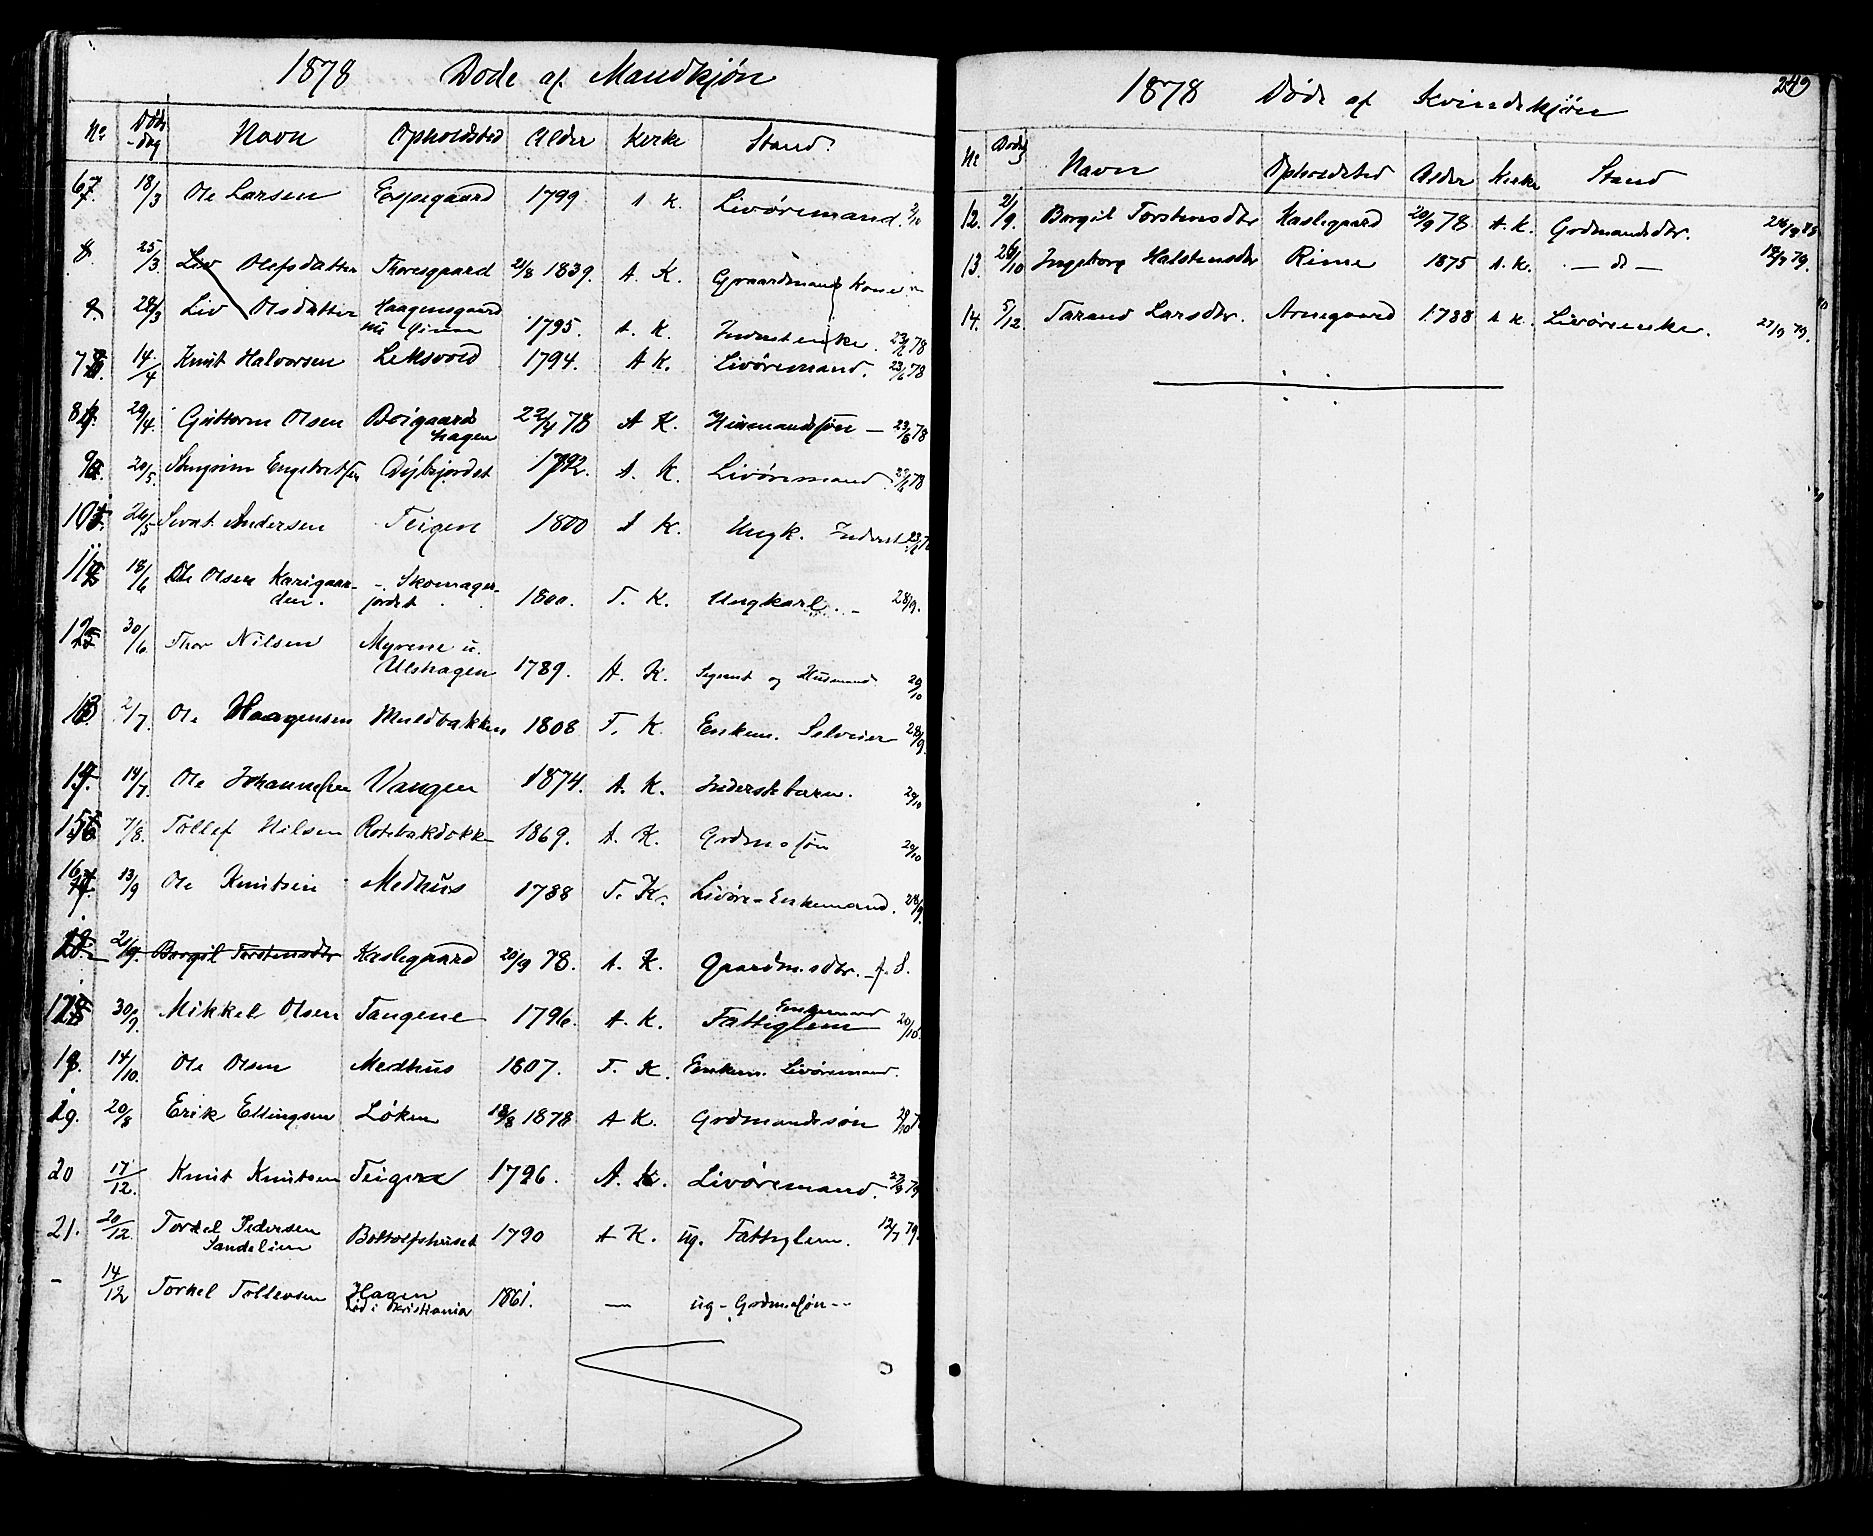 1878 Døde af Mandkjøn
No Døds-dag Navn Opholdsted Alder Kirke Stand
6 18/3 Ole Larsen Espegaard 1799 A K. Livøremand.
8 25/3 Liv Olefsdatter Thoresgaard 21/8 1839. A. K. Gaardmands Kone
9. 28/3 Liv Olsdatter Haagensgaard
1795. A. K. Inderstenke. 23/6 78
7 14/4 Knut Halvorsen Leksvold 1794. A K. Livøremand. 23/6 78
8 29/4. Guttorm Olsen Boigaard 22/4 78 A K. Husmandssøn — 23/6 78
hagen
9 20/5. Engebretsen Dybsjordet 1792. A. K. Livøremand. 23/6 78
10 26/5 Andersen Teigen 1800 A K. Ungk. Inderst
11 18/6 Ole Olsen Karigaar- Skomager-
den. jordet 1800. T. K. Ungkarl. 28/9.
12 30/6 Thor Nilsen Myrene u.
Ulshagen 1789. A. K. og Husmand 20/10
13 2/7. Ole Haagensen Muldbakken 1808 T. K. Enkem. Selveier 28/9.
14. 14/7. Ole Johannessen Vangen 1874. A. K. Inderstebarn. 20/10
15 7/8. Tollef Nilsen 1869. A. K. Grdmssøn 20/10
16 13/9 Ole Knutsen Medhus 1788 T. K. Livøre-Enkemand. 28/9.
21/9. Borgil Torstensdtr Haslegaard 20/9 78. A. K. Gaardmsdtr.
17 30/9. Mikkel Olsen Tangene 1796. A. K. Enkemand
Fattiglem 20/10.
18. 14/10. Ole Olsen Medhus 1807. T. K. Enkem. Livøremand.
19. 20/8 Erik Ellingsen Løken 18/8 1878 A K. Grdmandssøn
20 17/12. Knut Knutsen Teigen 1796. A. K. Livøremand.
21. 20/12. Torkel Pedersen
Sandelien 1790 A K. ug. Fattiglem. 12/7 79.
— 14/12 Torkel Tollevsen Hagen
død i Kristiania 1861. — ug- Grdmssøn--
1878 Døde af Kvindekjøn 249
No Navn Opholdsted Alder Kirke Stand
12. 21/9. Borgil Torstensdtr Haslegaard 20/9 78. A. K. Grdmandsdtr.
13. 26/10 Ingeborg Halstensdtr Rime 1875 A. K. — do — 12/7 79.
14. 5/12. Larsdtr. Arnegaard 1788 A K. Livørenke.